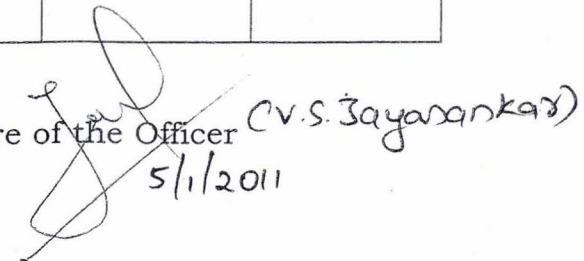 re of the Officer (V.S. Jayasankar)
5/1/2011